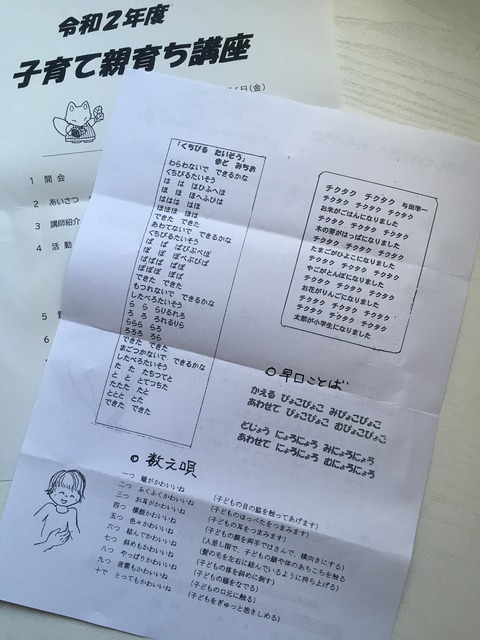 令和２年度
子育て親育ち講座
日(金)
1 開 会
2 あいさつ
3 講師紹介
4 活 動
5
6
「くちびる たいそう」
まど みちお
わらわないで できるかな
くちびるたいそう
は は はひふへほ
ほ ほ ほへふひは
はははは ははは
ほほほ ほほ
できた できた
あわてないで できるかな
くちびるたいそう
ぱ ぱ ぱぴぷぺぽ
ぽ ぽ ぽぺぷぴぱ
ぱぱぱ ぱぱ
ぽぽぽ ぽぽ
できた できた
もつれないで できるかな
したべろたいそう
ら ら らりるれろ
ろ ろ ろれるりら
ららら らら
ろろろ ろろ
できた できた
まごつかないで できるかな
したべろたいそう
た た たちつてと
と と とてつちた
たたた たた
ととと とと
できた できた
チクタク チクタク 与田凖一
チクタク チクタク チクタク
お米がごはんになりました
チクタク チクタク チクタク
木の芽がはっぱになりました
チクタク チクタク チクタク
たまごがひよこになりました
チクタク チクタク チクタク
やごがとんぼになりました
チクタク チクタク チクタク
お花がりんごになりました
チクタク チクタク チクタク
チクタク チクタク チクタク
太郎が小学生になりました
○早口ことば
かえる ぴょこぴょこ みぴょこぴょこ
あわせて ぴょこぴょこ むぴょこぴょこ
どじょう にょろにょろ みにょろにょろ
あわせて にょろにょろ むにょろにょろ
○ 数え唄
一つ 瞳がかわいいね (子どもの目の脇を触ってあげます)
二つ ふくふくかわいいね (子どものほっぺたをつまみます)
三つ お耳がかわいいね (子どもの耳をつまみます)
四つ 横顔かわいいね (子どもの顔を両手ではさんで、横向きにする)
五つ 色々かわいいね (人差し指で、子どもの顔や体のあちこちを触る)
六つ 結んでかわいいね (髪の毛を左右に結んでいるように持ち上げる)
七つ 斜めもかわいいね (子どもの体を斜めに倒す)
八つ やっぱりかわいいね (子どもの頭をなでる)
九つ 言葉もかわいいね (子どもの口元に触る)
十で とってもかわいいね (子どもをぎゅっと抱きしめる)